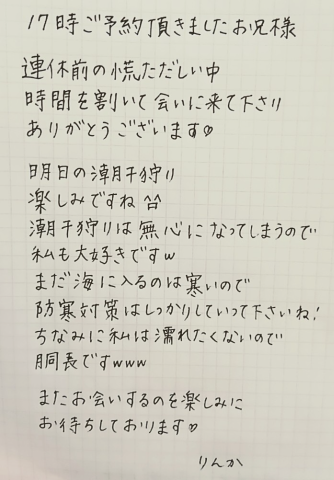 17時ご予約頂きましたお兄様
連休前の慌ただしい中
時間を割いて会いに来て下さり
ありがとうございます♡
明日の潮干狩り
楽しみですね^^
潮干狩りは無心になってしまうので
私も大好きですw
まだ海に入るのは寒いので
防寒対策はしっかりしていって下さいね!
ちなみに私は濡れたくないので
胴長ですwww
またお会いするのを楽しみに
お待ちしております♡
りんか